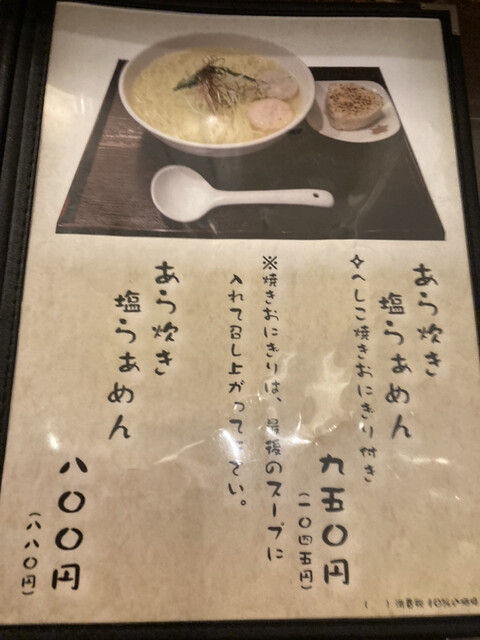 あら炊き
塩らぁめん
✧へしこ焼きおにぎり付き
九五〇円
(一〇四五円)
※焼きおにぎりは、最後のスープに
入れて召し上がって下さい。
あら炊き
塩らぁめん
八〇〇円
(八八〇円)